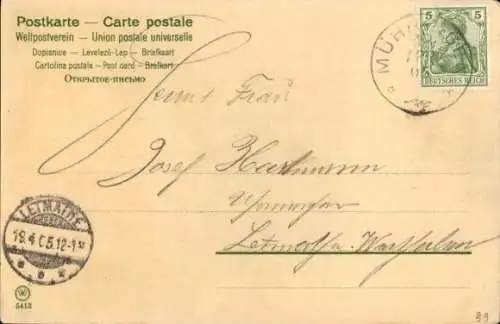 Postkarte — Carte postale
Weltpostverein — Union postale universelle
Dopisnice — Levelező-Lap — Briefkaart
Cartolina postale — Post card — Brefkort
Открытое письмо
5
5
DEUTSCHES REICH
MÜH
Frau
Josef Hartmann
LETMATHE
19.4.05.12-1N
5413
99